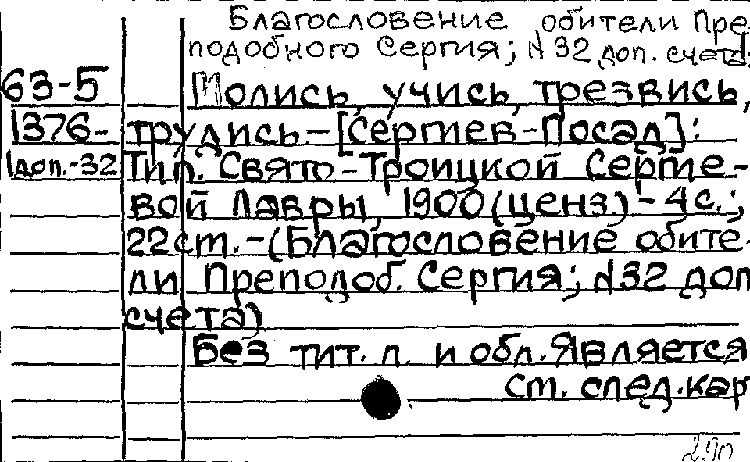 Благословение обители Пре
подобного Сергия; N 32 доп. счета
63-5 Молись, учись, трезвись,
1376- трудись. - [Сергиев-Посад]:
1доп.-32 Тип. Свято-Троицкой Сергие-
вой Лавры, 1900 (ценз.) - 4с.;
22 cm. - (Благословение обите-
ли Преподоб. Сергия; N 32 доп
счета)
Без тит. л. и обл. Является
См. след. кар